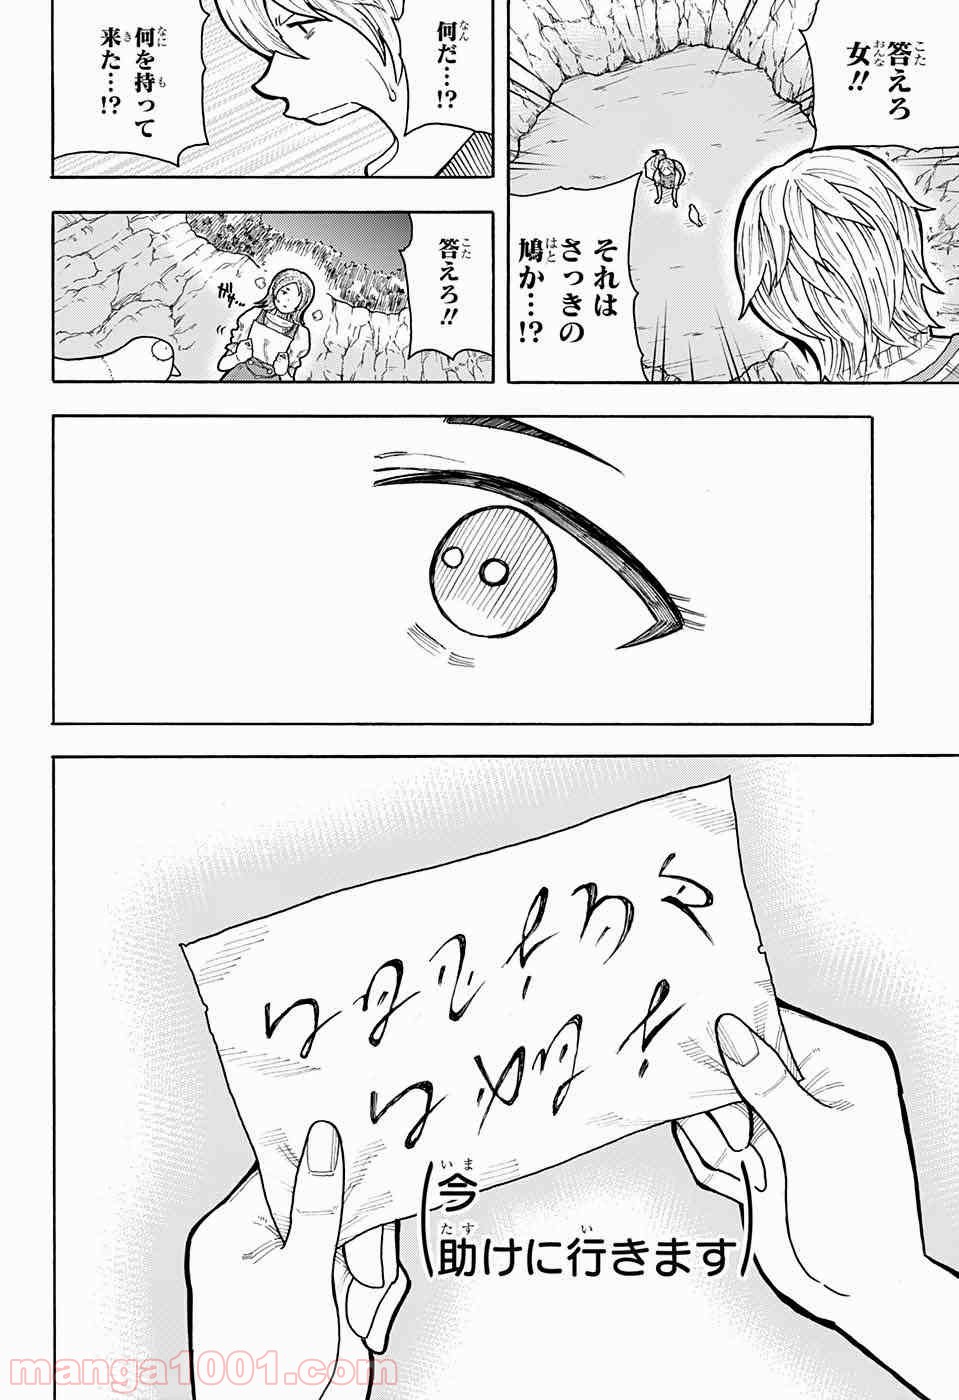 答えろ
女!!
それは
さっきの
鳩か…!?
何だ…!?
何を持って
来た…!?
答えろ!!
ガギ…
今
助けに行きます
manga1001.com